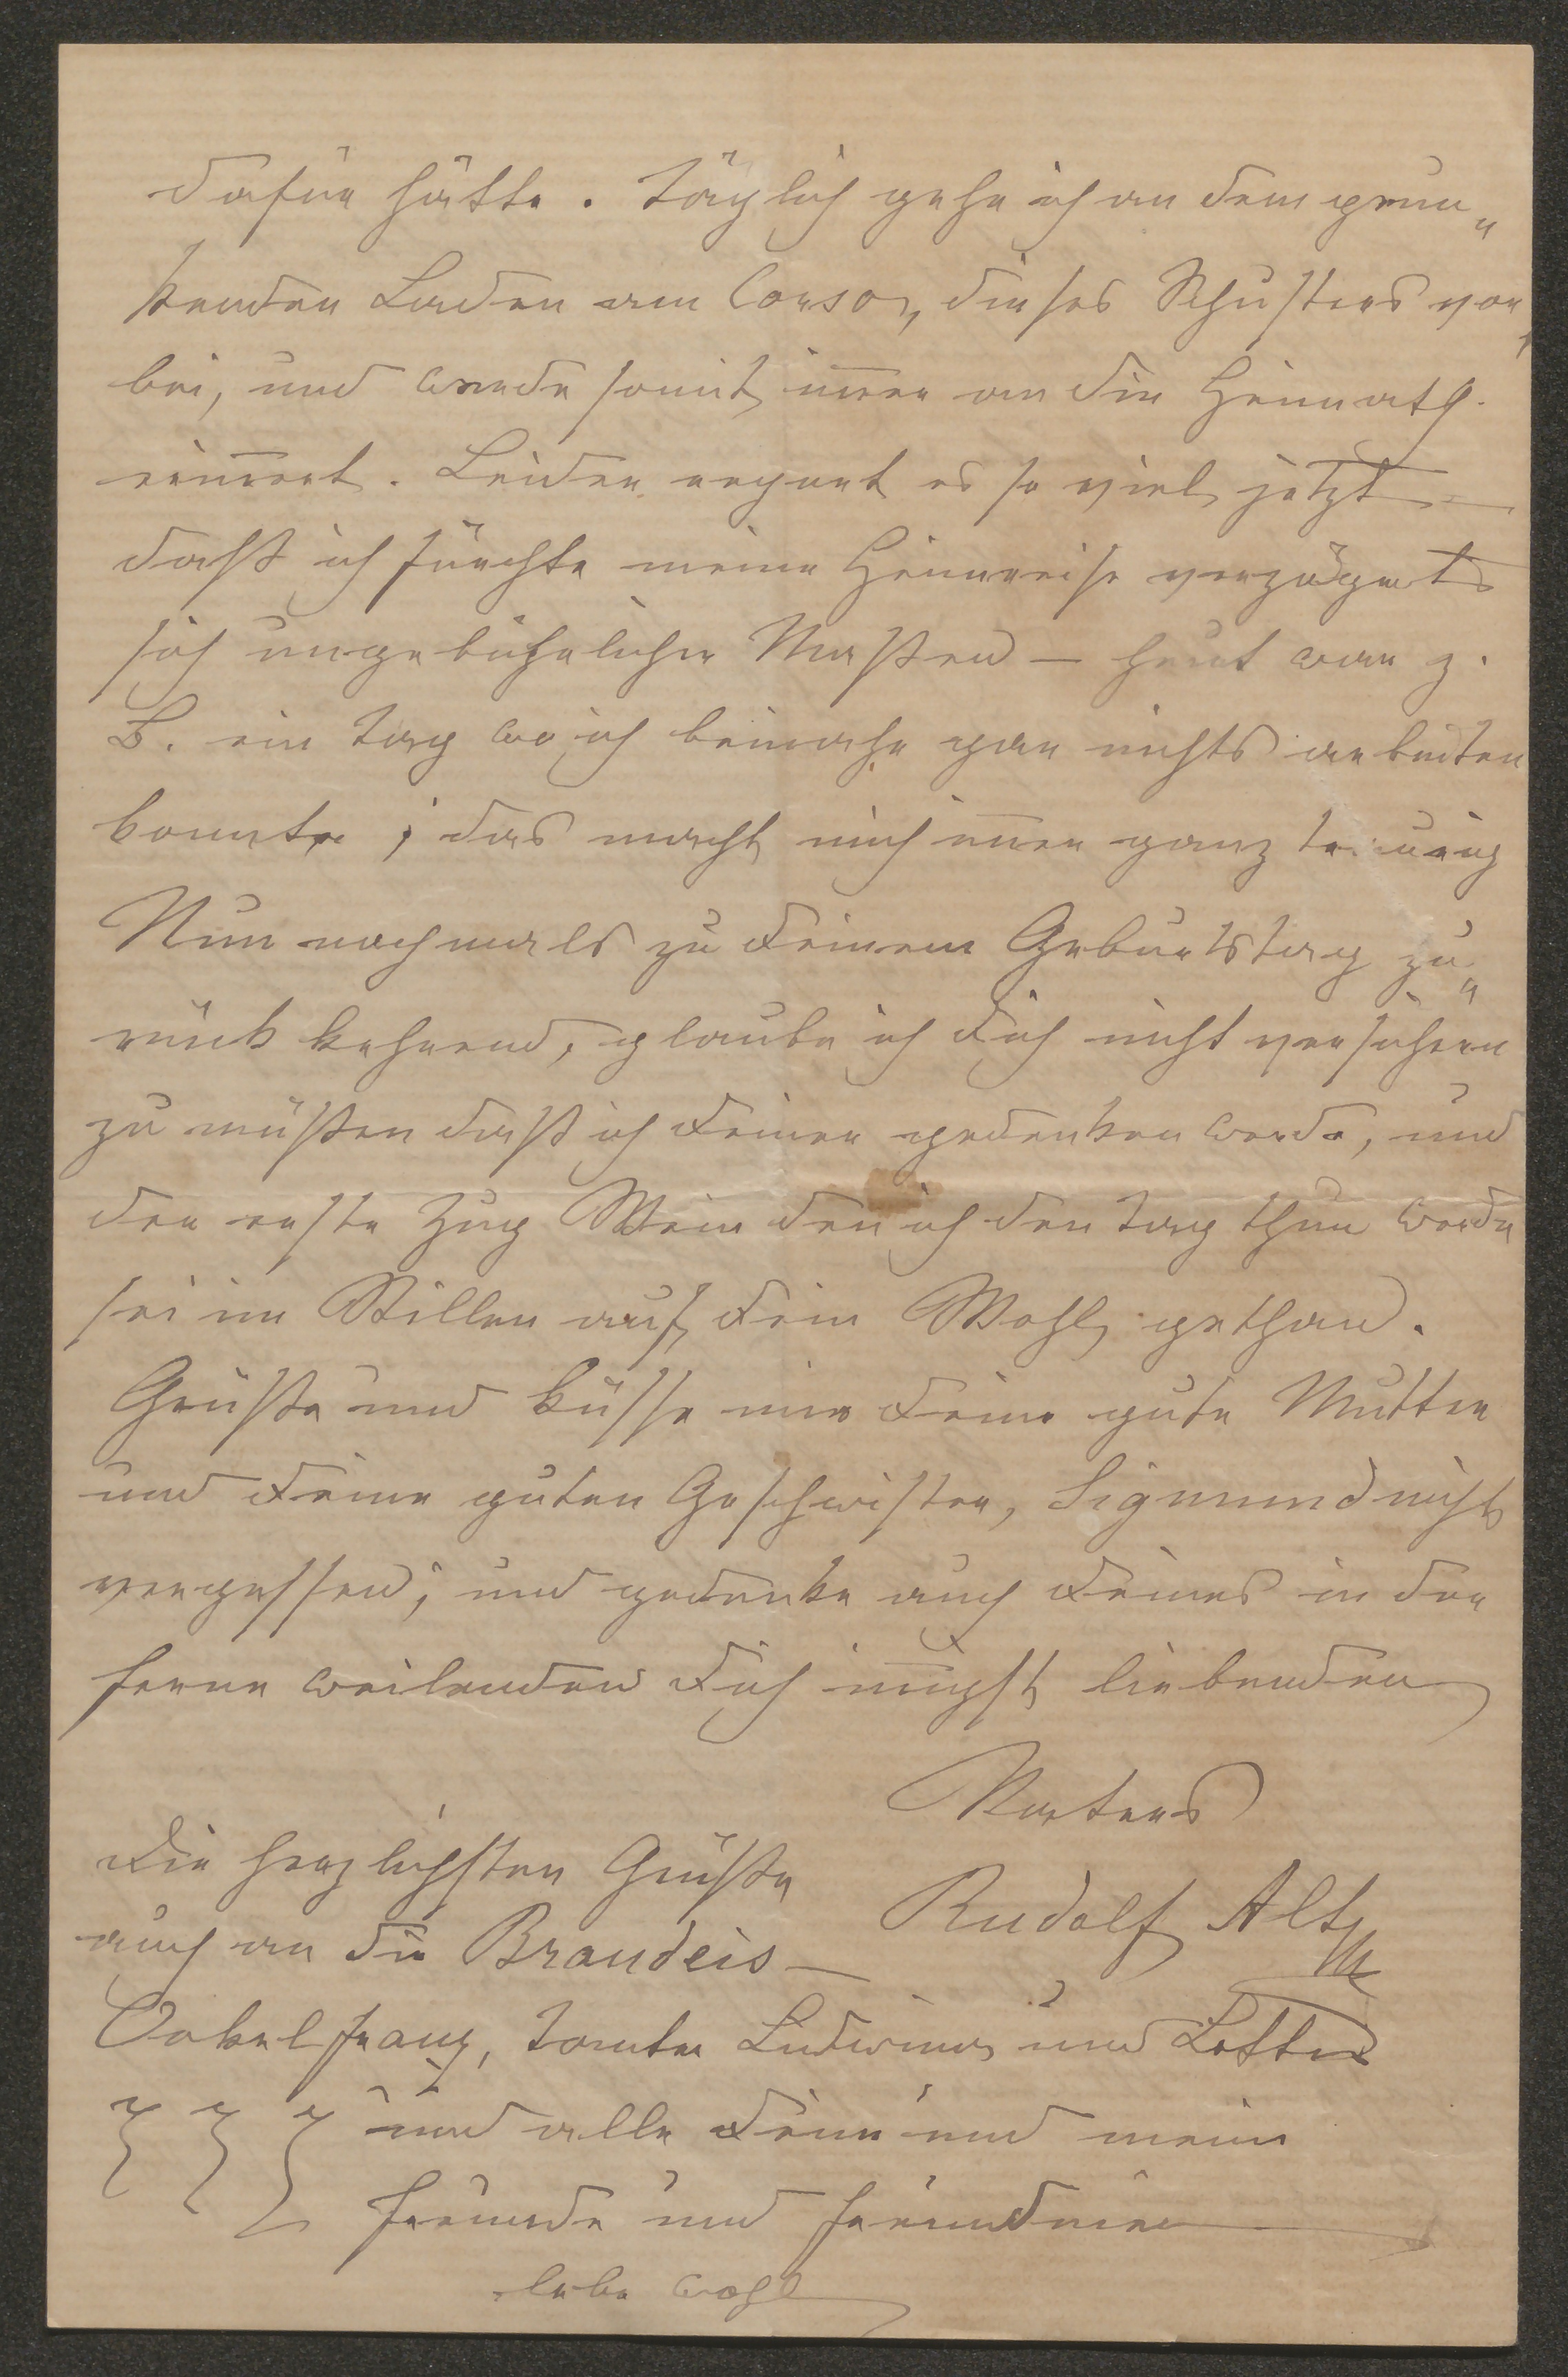 dafür hätte. Täglich gehe ich an dem prun„
kenden Laden am Corso, dieses Schusters vor„
bei, und werde somit im̅er an die Heimath
erin̅ert. Leider regnet es so viel jetzt —
daß ich fürchte meine Heimreise verzögert
sich ungebührlicher Maßen — heut war z.
B. ein Tag wo ich beinahe gar nichts arbeiten
konnte; das macht mich im̅er ganz traurig
Nun nochmals zu Deinem Geburtstag zu„
rück kehrend, glaube ich Dich nicht versichern
zu müßen daß ich Deiner gedenken werde, und
der erste Zug Wein den ich den Tag thun werde
sei im Stillen auf Dein Wohl gethan.
Grüße und küsse mir Deine gute Mutter
und Deine guten Geschwister, Sigmund nicht
vergessend; und gedenke auch Deines in der
Ferne weilenden Dich in̅igst liebenden
Vaters
Rudolf Alt
Die herzlichsten Grüße
auch an die Brandeis —
Onkel Franz, Tante Ludwina und Lotti
und alle Deine und meine
Freunde und Freundinen
lebe wohl